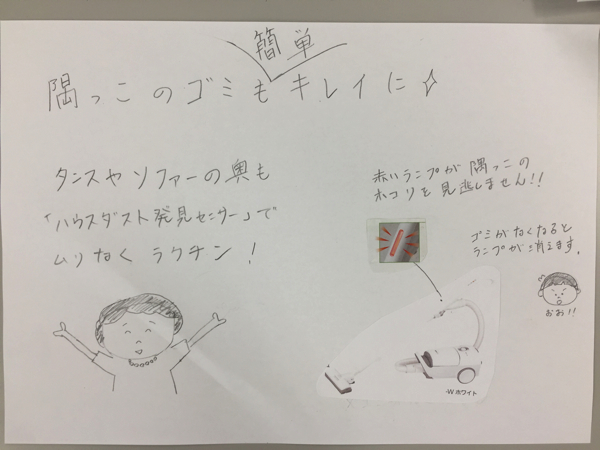 簡単
隅っこのゴミもキレイに
タンスやソファーの奥も
「ハウスダスト発見センサー」で
ムリなくラクチン!
赤いランプが隅っこの
ホコリを見逃しません!!
ゴミがなくなると
ランプが消えます。
おお!!
-Wホワイト